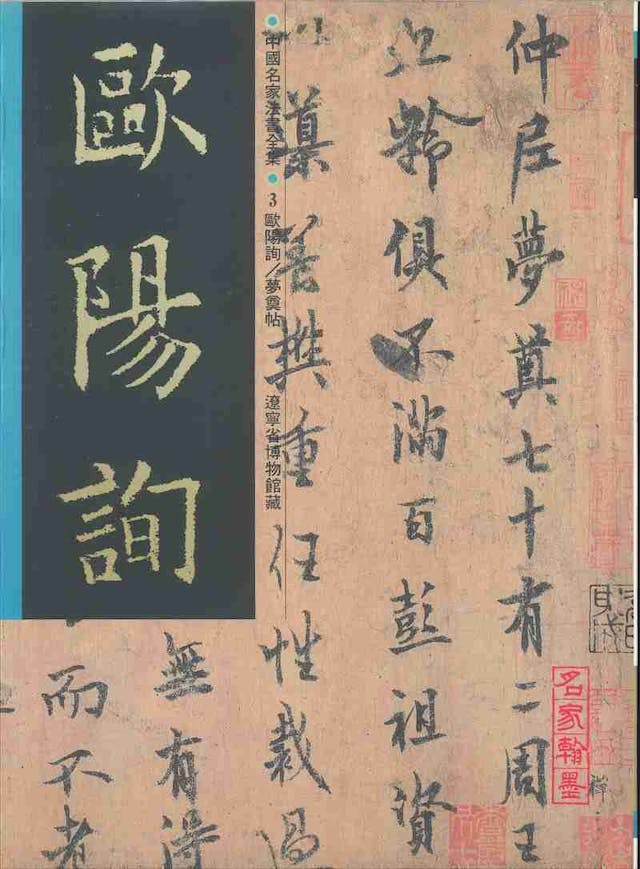 歐陽詢
中國名家法書全集 3 歐陽詢／夢奠帖 遼寧省博物館藏
仲尼夢奠七十有二周王
九齡俱不滿百彭祖資
養樊重任性裁過
無有得
而不老
名家翰墨